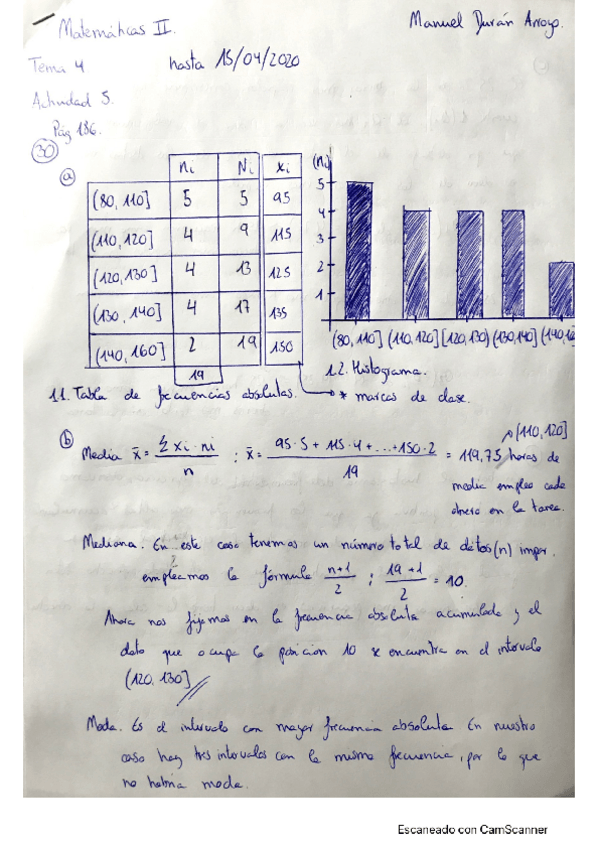 Matemáticas II.
Manuel Durán Arroyo.
Tema 4
hasta 15/04/2020
Actividad 5.
Pág 186.
30
a
ni Ni xi
(80, 110] 5 5 95
(110, 120] 4 9 115
(120, 130] 4 13 125
(130, 140] 4 17 135
(140, 160] 2 19 150
19
(ni)
5
4
3
2
1
(80, 110] (110, 120] [120, 130) (130, 140] (140, 1
1.2. Histograma.
1.1. Tabla de frecuencias absolutas.
* marcas de clase.
b
(110, 120]
Media x̄ = Σ xi · ni / n ; x̄ = 95·5 + 115·4 + ... + 150·2 / 19 = 119,75 horas de
media empleo cada
obrero en la tarea.
Mediana. En este caso tenemos un número total de datos (n) impar.
empleamos la fórmula n+1 / 2 ; 19+1 / 2 = 10.
Ahora nos fijamos en la frecuencia absoluta acumulada y el
dato que ocupa la posición 10 se encuentra en el intervalo
(120, 130]
Moda. Es el intervalo con mayor frecuencia absoluta. En nuestro
caso hay tres intervalos con la misma frecuencia, por lo que
no habría moda.
Escaneado con CamScanner